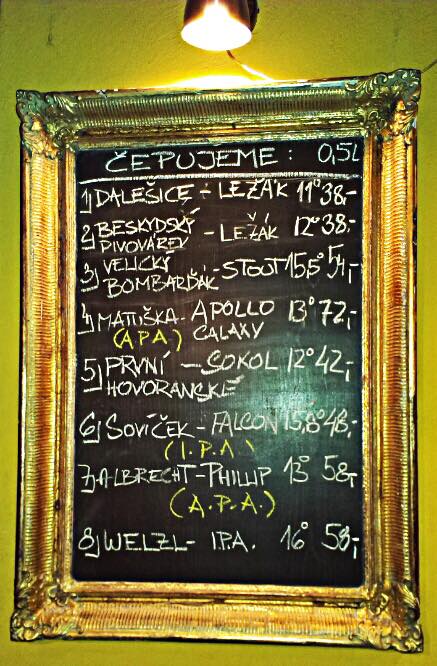 ČEPUJEME: 0,5L
1) DALEŠICE - LEŽÁK 11° 38,-
2) BESKYDSKÝ - LEŽÁK 12° 38,-
PIVOVÁREK
3) VELICKÝ - STOUT 15,5° 54,-
BOMBARĎÁK
4) MATUŠKA - APOLLO 13° 72,-
(APA) GALAXY
5) PRVNÍ - SOKOL 12° 42,-
HOVORANSKÉ
6) SOVÍČEK - FALCON 15,8° 48,-
(I.P.A.)
7) ALBRECHT - PHILIP 13° 58,-
(A.P.A.)
8) WELZL - I.P.A. 16° 58,-